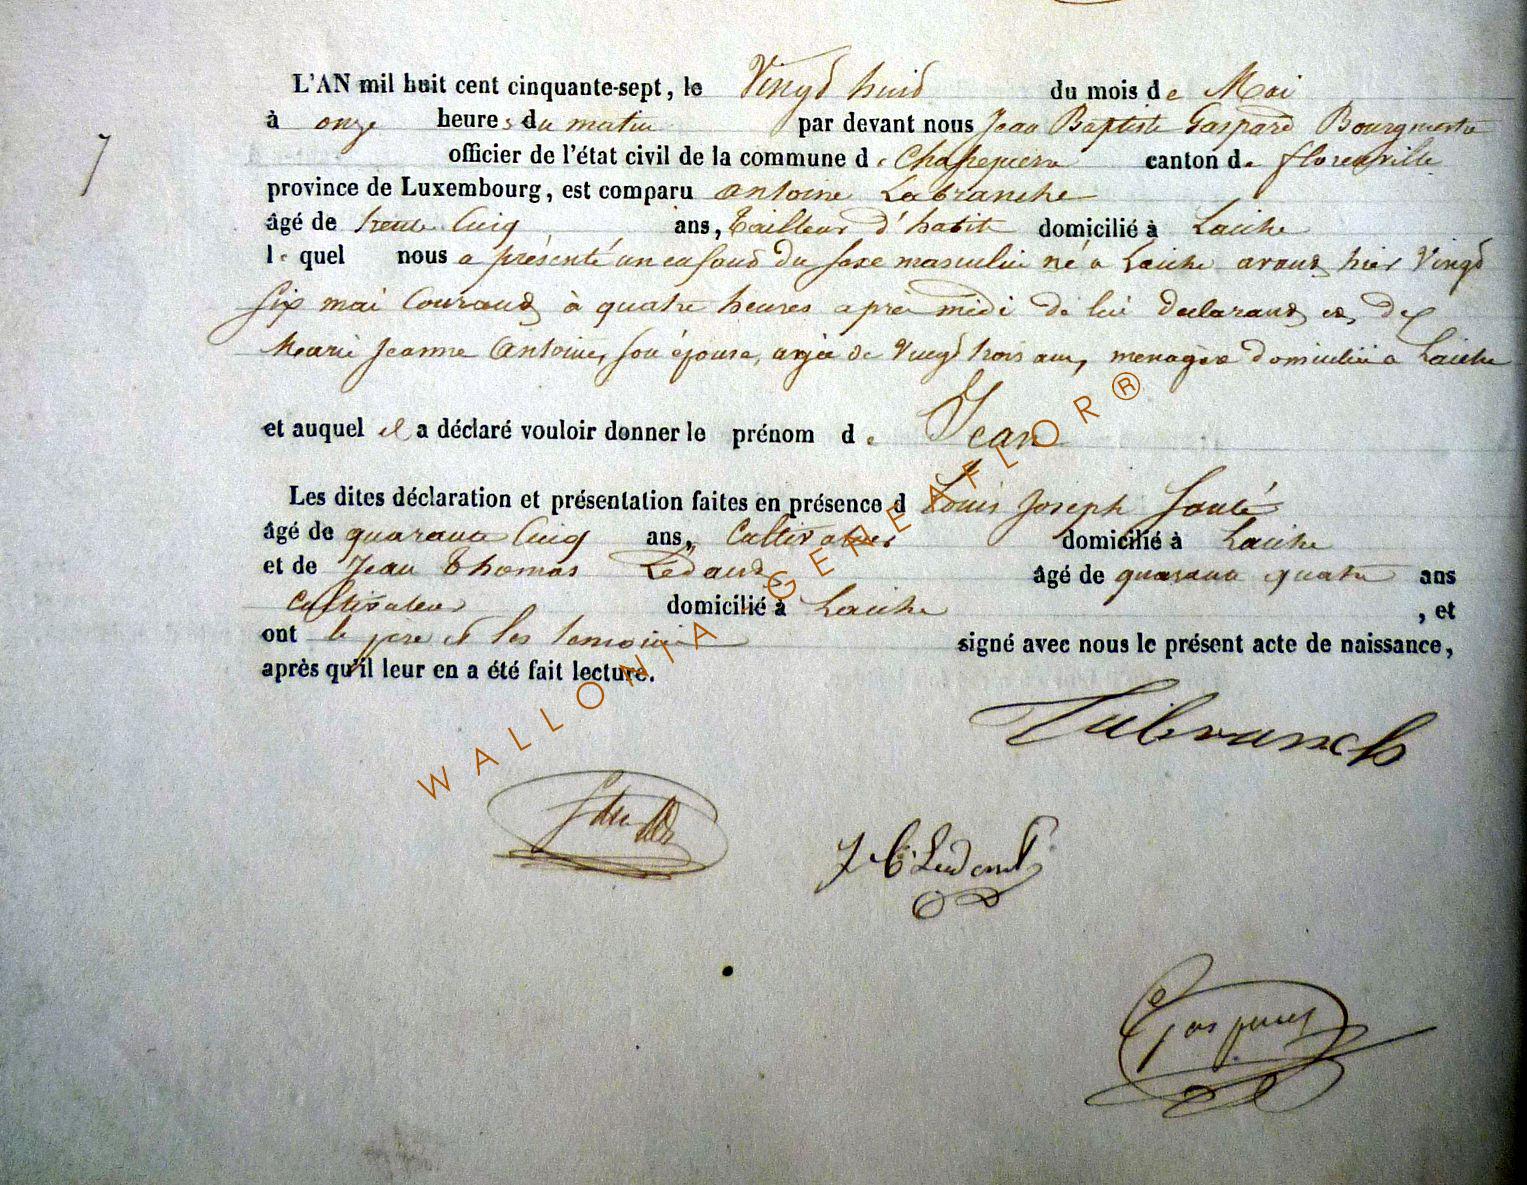 L'AN mil huit cent cinquante-sept, le Vingt huit du mois de Mai
à onze heures du matin par devant nous Jean Baptiste Gaspard Bourgmestre
7
officier de l'état civil de la commune de Chassepierre canton de florenville
province de Luxembourg, est comparu antoine Labranche
âgé de trente Cinq ans, tailleur d'habit domicilié à Laiche
lequel nous a présenté un enfant du sexe masculin né a Laiche avant hier Vingt
six mai Courant à quatre heures apres midi de lui declarant et de
Marie Jeanne Antoine, son épouse, agée de Vingt trois ans, menagère domiciliée a Laiche
et auquel il a déclaré vouloir donner le prénom de Jean
Les dites déclaration et présentation faites en présence d Louis Joseph
âgé de quarante Cinq ans, Cultivateur domicilié à Laiche
et de Jean Thomas Ledant âgé de quarante quatre ans
Cultivateur domicilié à Laiche , et
ont le pere et les temoins signé avec nous le présent acte de naissance,
après qu'il leur en a été fait lecture.
Labranch
J T Ledant
Gaspard
WALLONIA - GENEAFLOR®